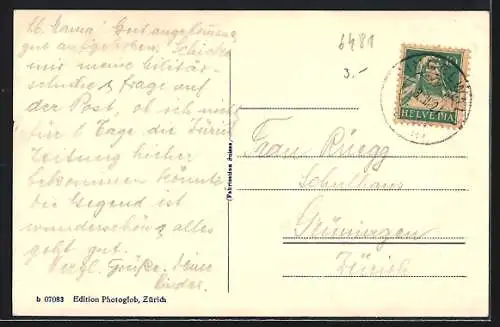 Lb. Mama! Gut angekommen
gut aufgehoben. Schicke
mir meine Militär-
schuhe & frage auf
der Post, ob ich nicht
für 8 Tage die Zürich
Zeitung hieher
bekommen könnte
die Gegend ist
wunderschön & alles
geht gut.
Herzl. Grüße. Deine
Kinder.
b 07083 Edition Photoglob, Zürich
(Fabrication Suisse)
6481
3.-
HELVETIA
Frau Rüegg
Schulhaus
Grüningen
Zürich